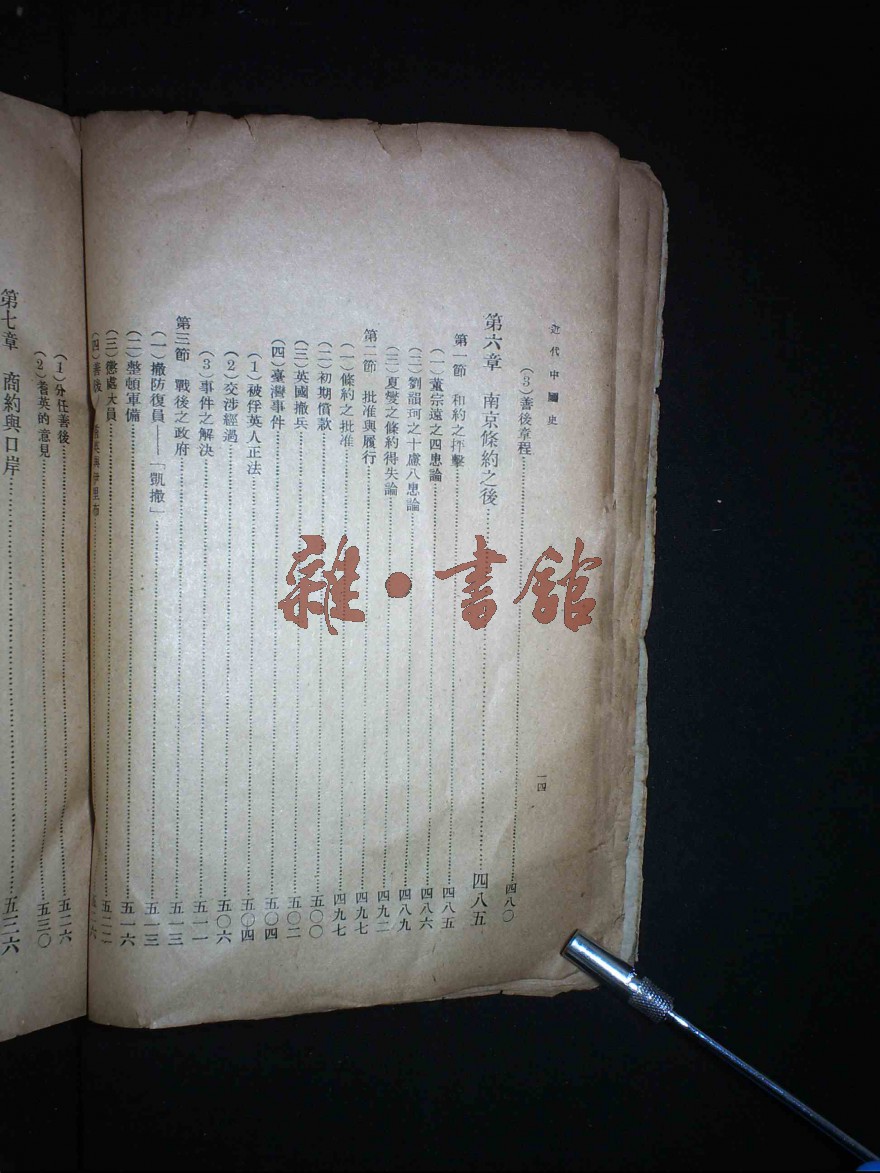 近代中國史
一四
(3)善後章程……四八〇
第六章 南京條約之後……四八五
第一節 和約之抨擊……四八五
(一)董宗遠之四患論……四八六
(二)劉韻珂之十慮八患論……四八九
(三)夏燮之條約得失論……四九二
第二節 批准與履行……四九七
(一)條約之批准……四九七
(二)初期償款……五〇〇
(三)英國撤兵……五〇二
(四)臺灣事件……五〇四
(1)被俘英人正法……五〇四
(2)交涉經過……五〇六
(3)事件之解決……五一一
第三節 戰後之政府……五一三
(一)撤防復員——「凱撤」……五一三
(二)整頓軍備……五一六
(三)懲處大員……五二二
(四)善後 與伊里布……二六
(1)分任善後……五二六
(2)耆英的意見……五三〇
第七章 商約與口岸……五三六
雜·書館